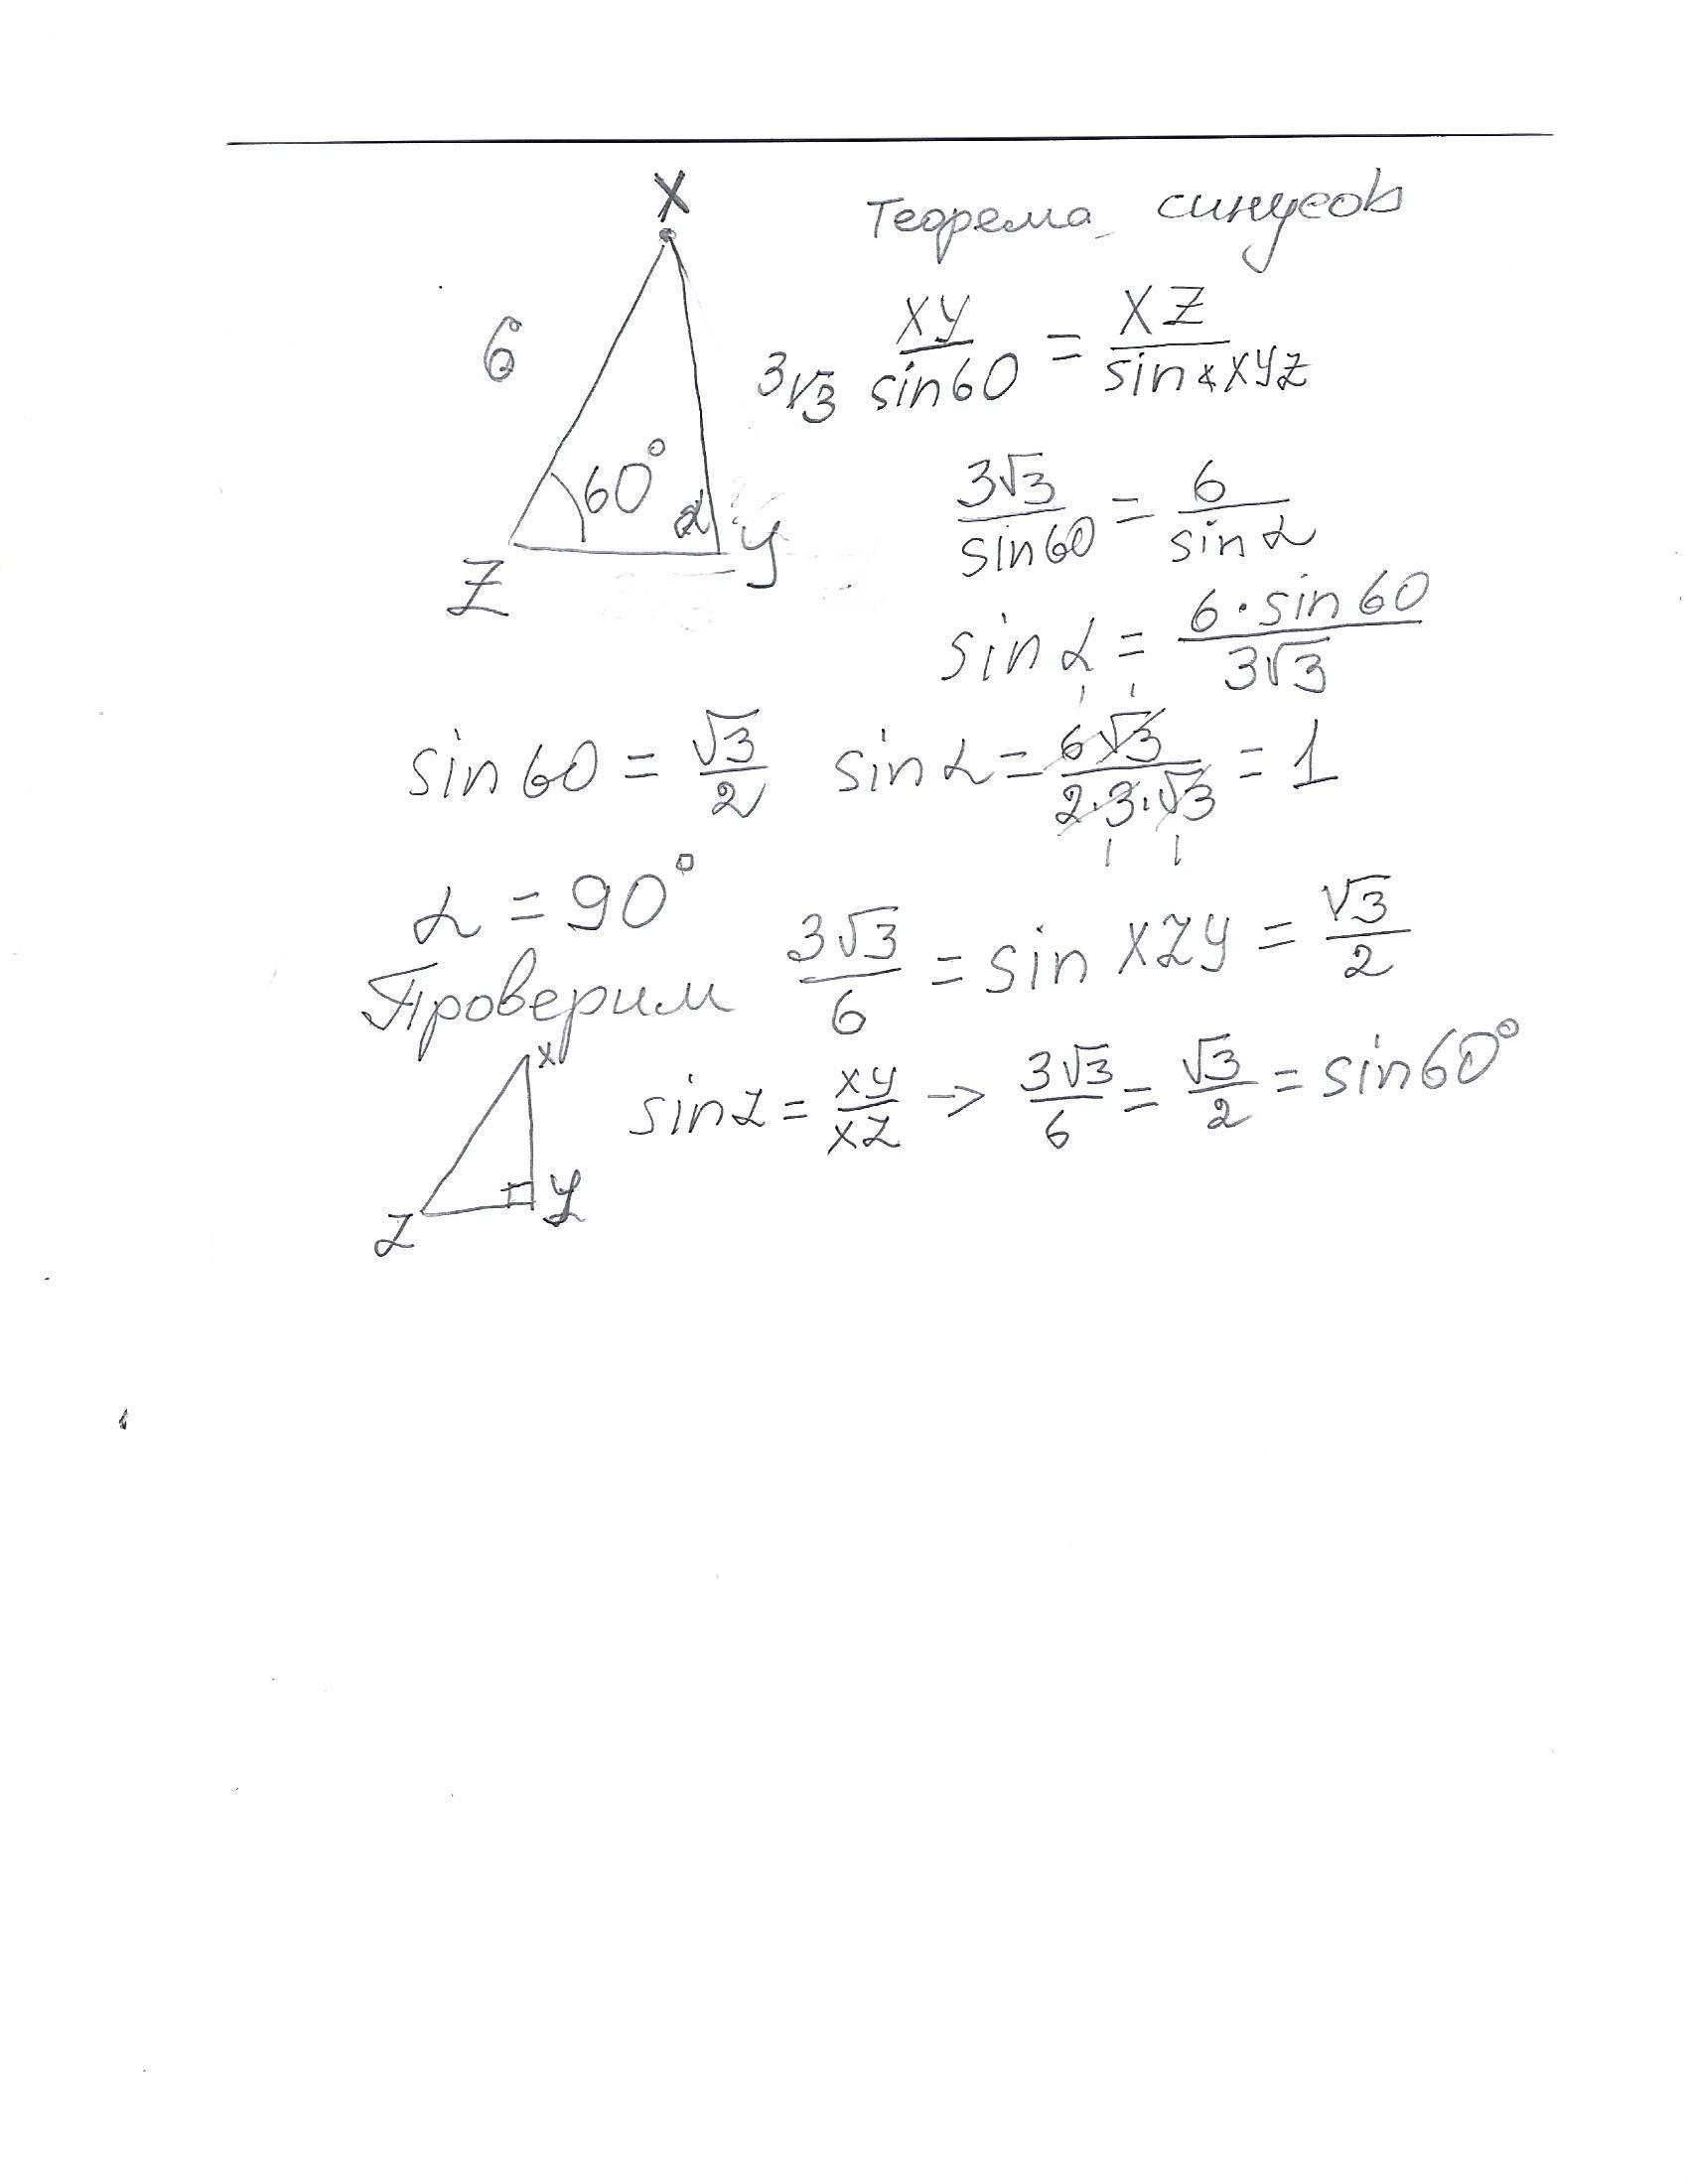 X
Теорема синусов
6
3√3
XY/sin60 = XZ/sin∡XYZ
60°
α
Z
Y
3√3/sin60 = 6/sinα
sinα = 6·sin60/3√3
sin60 = √3/2 sinα = 6√3/2·3·√3 = 1
1 1
1 1
α = 90°
Проверим 3√3/6 = sin XZY = √3/2
X
sinZ = XY/XZ → 3√3/6 = √3/2 = sin60°
Z
Y